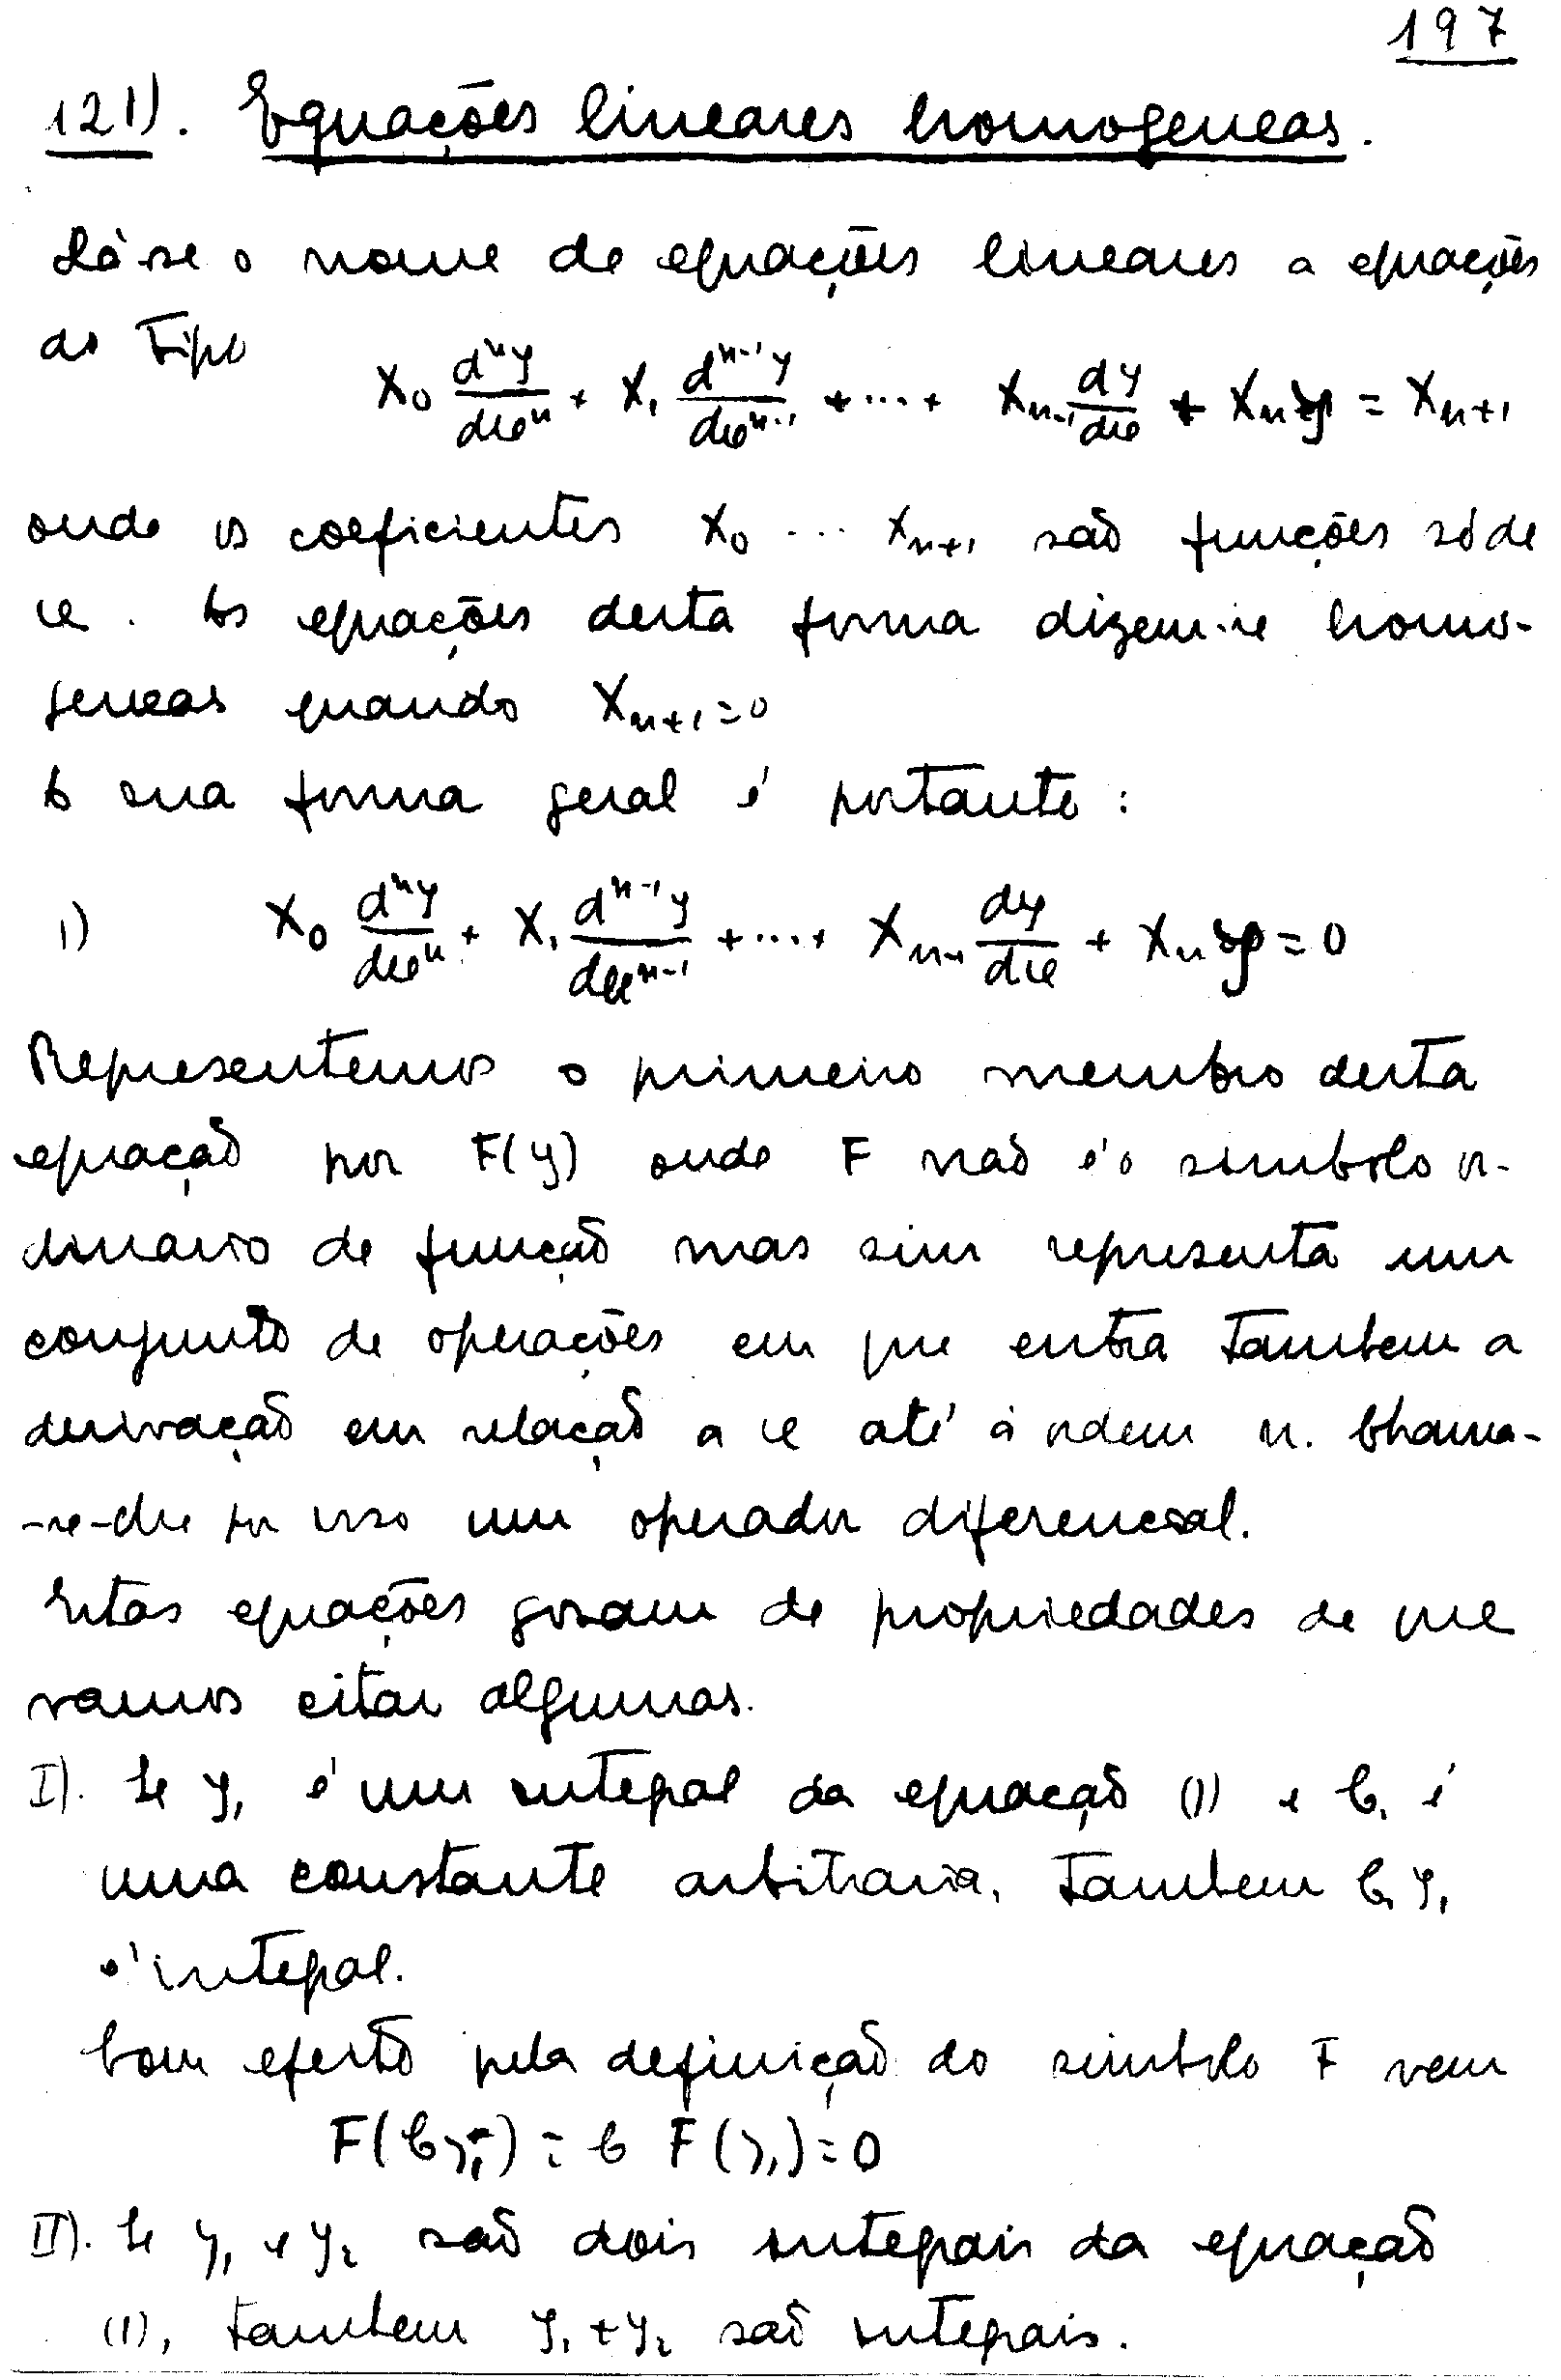 197
121). Equações lineares homogeneas.
Dá-se o nome de equações lineares a equações
do tipo X₀ dⁿy/dxⁿ + X₁ dⁿ⁻¹y/dxⁿ⁻¹ + ... + Xₙ₋₁ dy/dx + Xₙ y = Xₙ₊₁
onde os coeficientes X₀ ... Xₙ₊₁ são funções só de
x. As equações desta forma dizem-se homo-
geneas quando Xₙ₊₁ = 0
A sua forma geral é portanto:
1) X₀ dⁿy/dxⁿ + X₁ dⁿ⁻¹y/dxⁿ⁻¹ + ... + Xₙ₋₁ dy/dx + Xₙ y = 0
Representemos o primeiro membro desta
equação por F(y) onde F não é o simbolo or-
dinario de função mas sim representa um
conjunto de operações em que entra tambem a
derivação em relação a x até á ordem n. Chama-
-se-lhe por isso um operador diferencial.
Estas equações gosam de propriedades de que
vamos citar algumas.
I). Se y₁ é um integral da equação (1) e C₁ é
uma constante arbitraria, tambem C₁ y₁
é integral.
Com efeito pela definição do simbolo F vem
F(C y₁) = C F(y₁) = 0
II). Se y₁ e y₂ são dois integrais da equação
(1), tambem y₁ + y₂ são integrais.